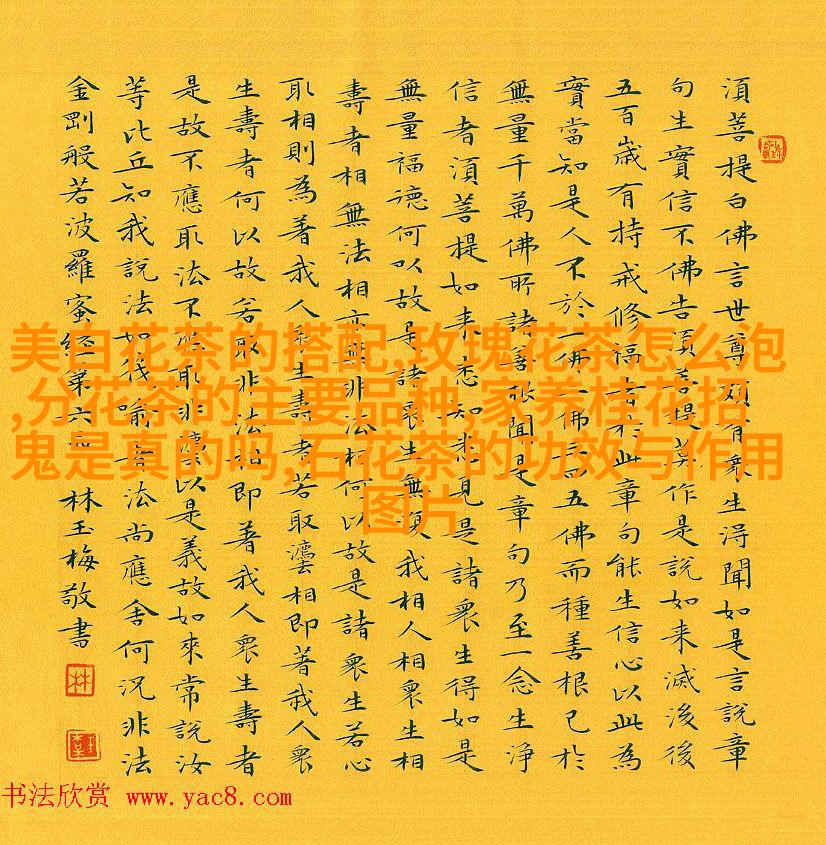 須菩提白佛言世尊頗有衆生得聞如是言說章
句生實信不佛告須菩提莫作是說如来滅後後
五百歲有持戒修福者於此章句能生信心以此為
實當知是人不於一佛二佛三四五佛而種善根已於
無量千萬佛所諸善根聞是章句乃至一念生淨
信者須菩提如来悉知悉見是諸衆生得如是
無量福德何以故是諸衆生無復我相人相衆生相
壽者相無法相亦無非法相何以故是諸衆生若心
取相則為著我人衆生壽者若取灋相即著我人衆
生壽者何以故若取非法相即著我人衆生壽者
是故不應取法不應取非灋以是義故如來常說汝
等比丘知我說法如筏喻者法尚應舍何況非法
金剛般若波羅蜜經第六 林玉梅敬書
美白花茶的搭配,玫瑰花茶怎么泡
,分花茶的主要品种,家养桂花招
鬼是真的吗,石花茶的功效与作用
图片
书法欣赏 www.yac8.com